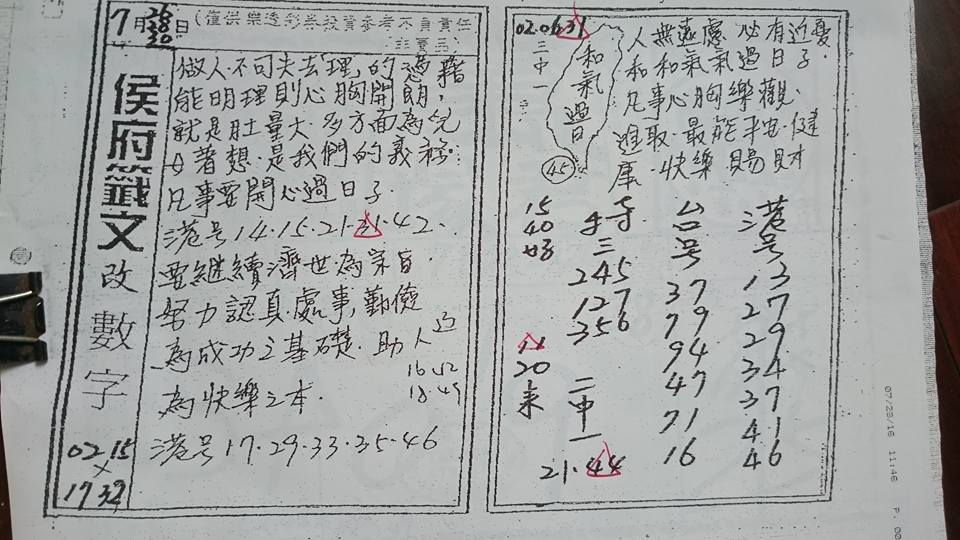 7月26 28 30日
(僅供樂透彩券投資參考不負責任
侯府籤文改數字
02 15
×
17 32
做人·不可失去理,的憑藉
能明理則心胸開朗,
就是肚量大·多方面為兒
女著想·是我們的義務:
凡事要開心過日子·
港号14·15·21·31·42·
要繼續濟世為宗旨·
努力認真·處事,勤儉
為成功之基礎·助人
為快樂之本·
16 42
18 49
港号17·29·33·35·46
02.06.31
三中一
和氣過日
45
人無遠慮 必有近憂
和和氣氣過日子·
凡事心胸樂觀·
進取·最能平安·健
康·快樂賜財
港号
13
27
29
34
37
41
46
台号
37
79
94
47
71
16
三
245
127
356
二中一
21·44
15
40
好
11
20
來
07/28/16 11:46 P. 00